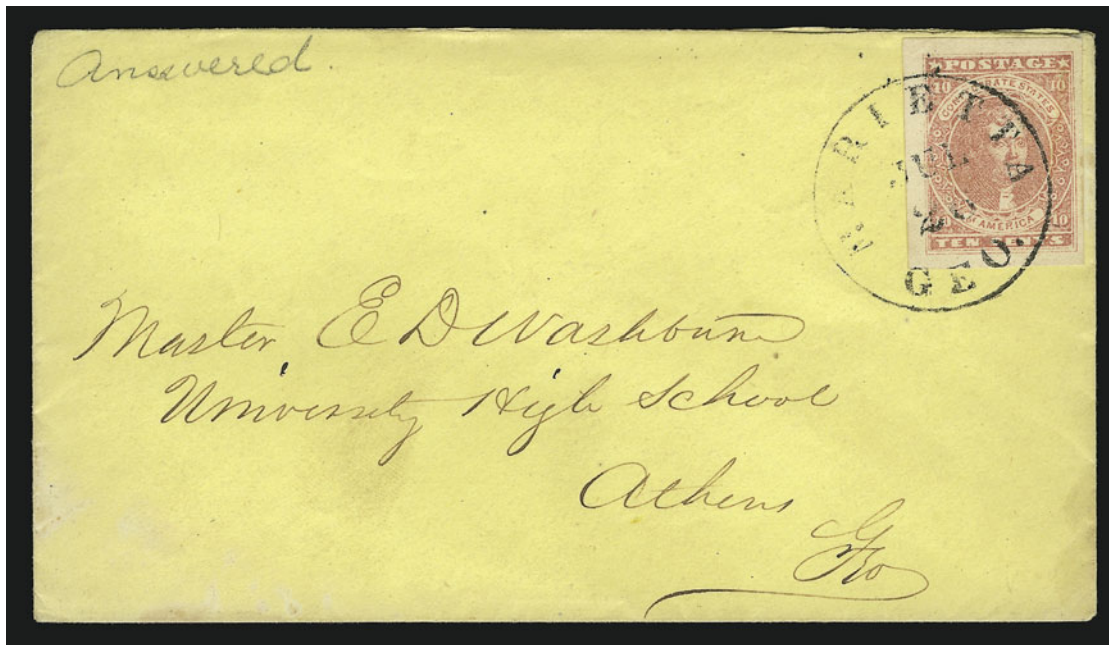 Answered.
POSTAGE
10 10
CONFEDERATE STATES
OF AMERICA
10
TEN CENTS
MARIETTA
JUL
GEO.
Master E D Washburn
University High School
Athens
Geo